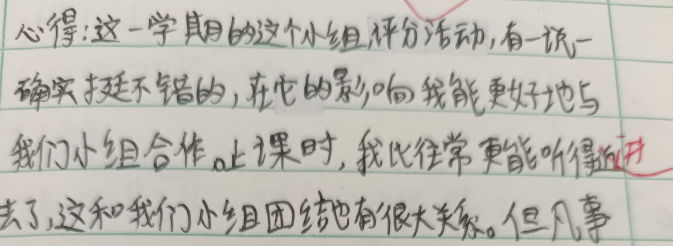 心得：这一学期的这个小组评分活动，有一说一
确实挺不错的，在它的影响我能更好地与
我们小组合作。上课时，我比往常更能听得进
去了，这和我们小组团结也有很大关系。但凡事